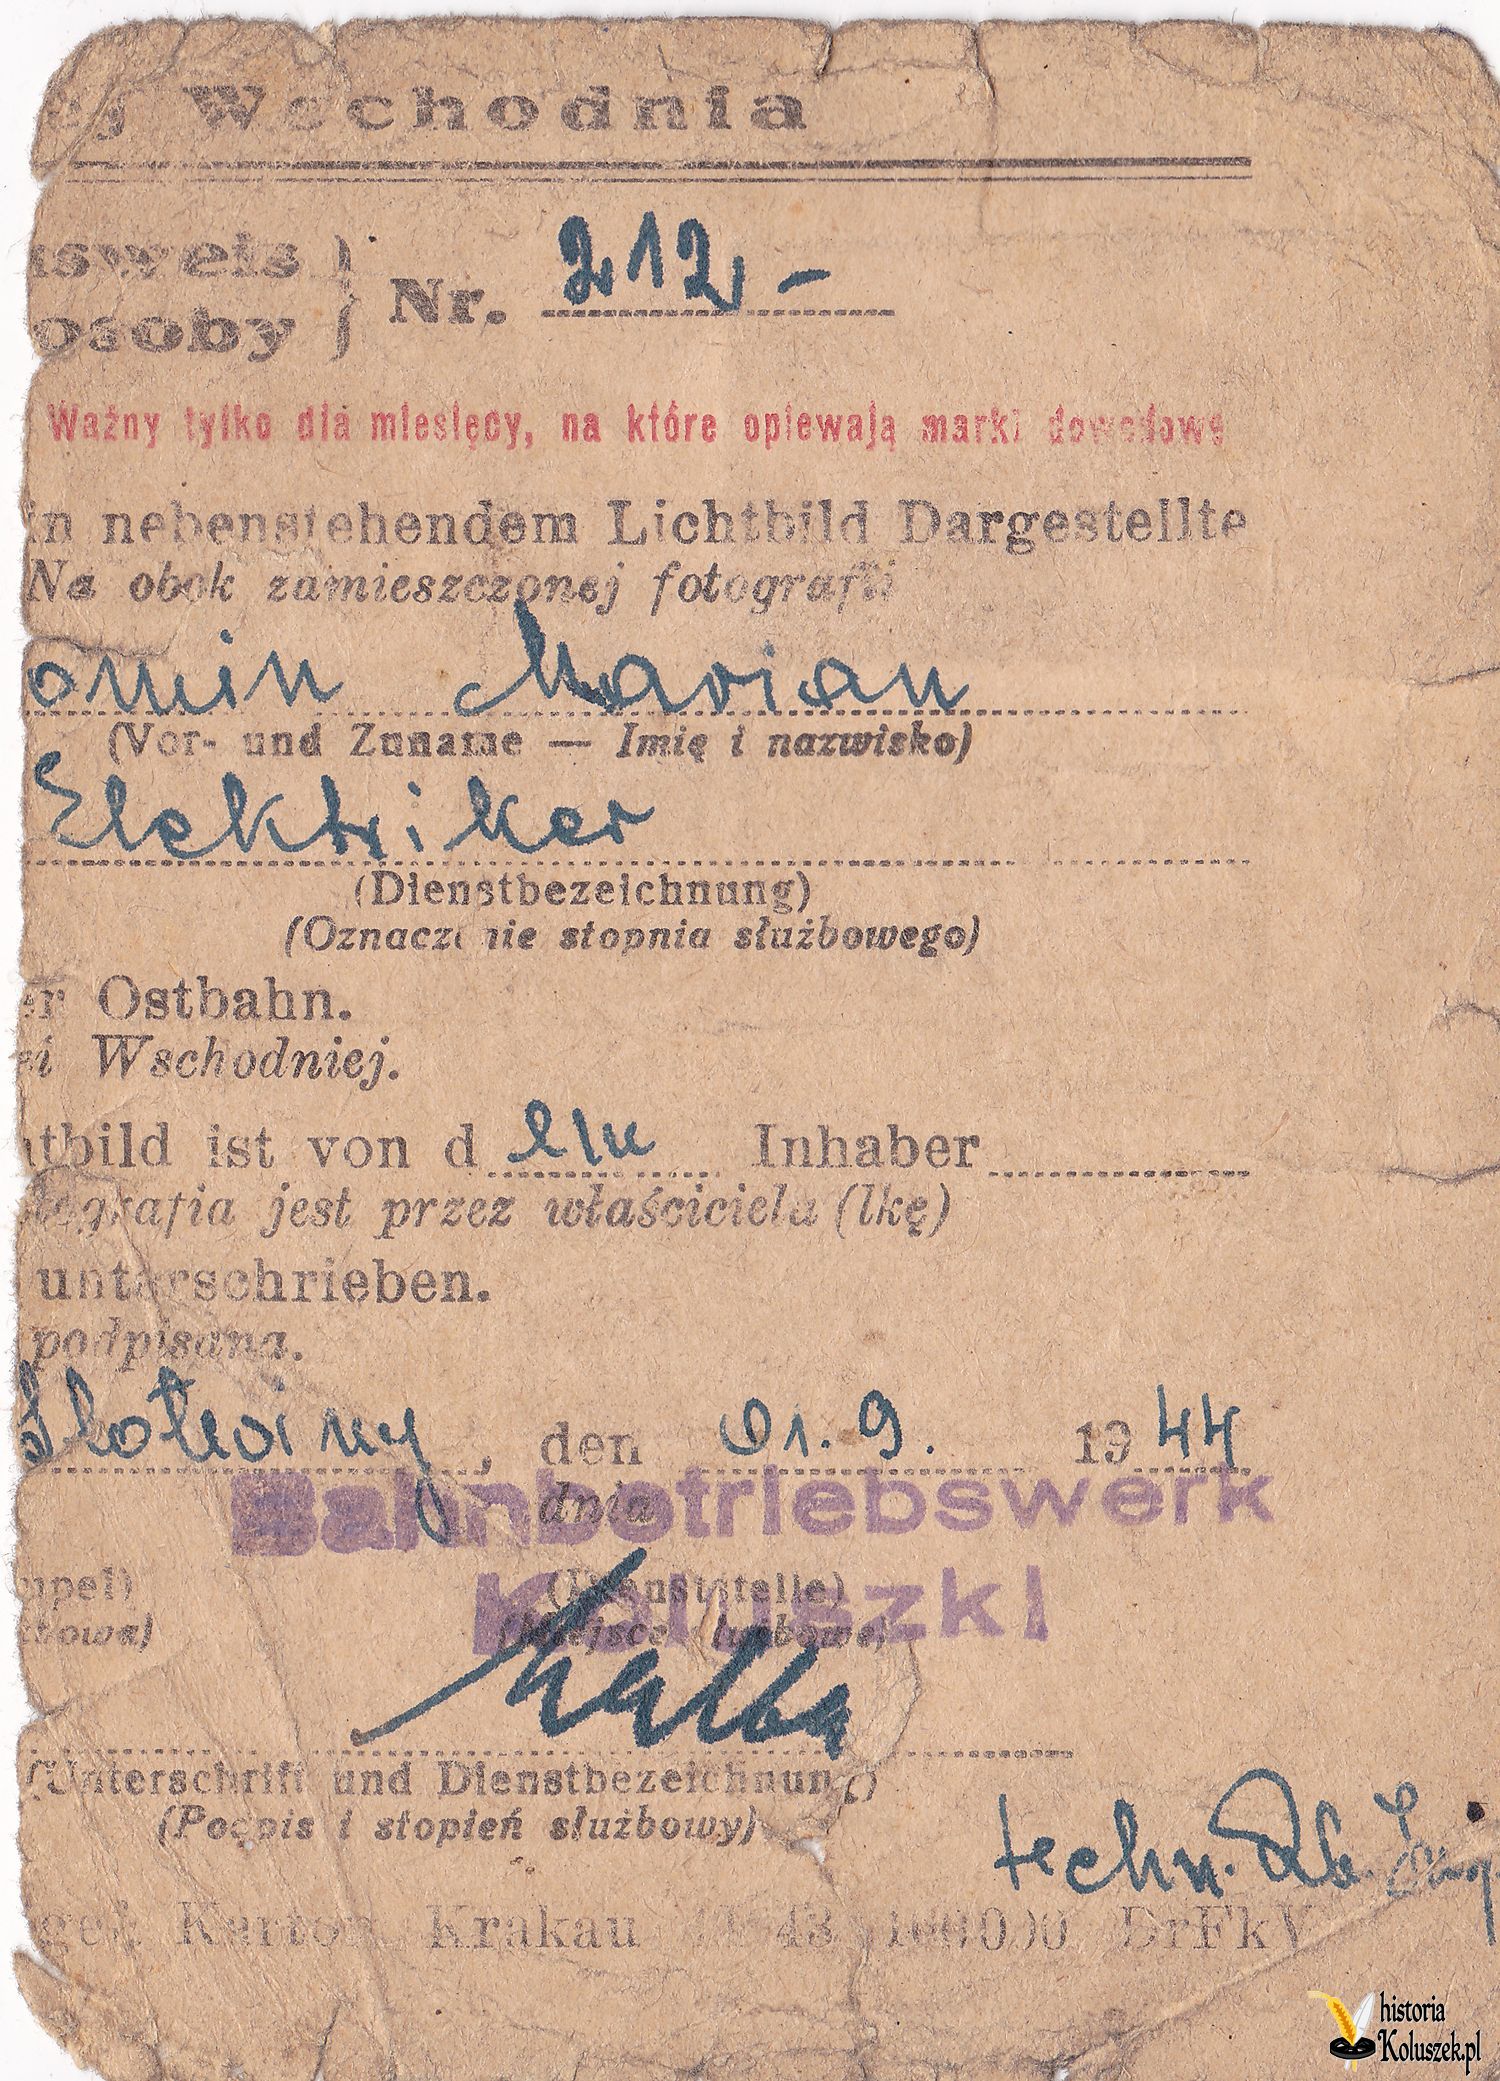 ej Wschodnia
usweis
osoby
Nr. 212 -
Ważny tylko dla miesięcy, na które opiewają marki dowodowe
in nebenstehendem Lichtbild Dargestellte
Na obok zamieszczonej fotografii
omin Marian
(Vor- und Zuname — Imię i nazwisko)
Elektriker
(Dienstbezeichnung)
(Oznaczenie stopnia służbowego)
er Ostbahn.
ei Wschodniej.
htbild ist von d em Inhaber
tografia jest przez właściciela (lkę)
unterschrieben.
podpisana.
Slotwiny, den 01.9. 1944
dnia
Bahnbetriebswerk
Koluszki
mpel)
(Dienststelle)
żbowa)
(Miejsce służbowe)
(Unterschrift und Dienstbezeichnung)
(Podpis i stopień służbowy)
techn.
Karton Krakau 43 DrFkV
historia
Koluszek.pl